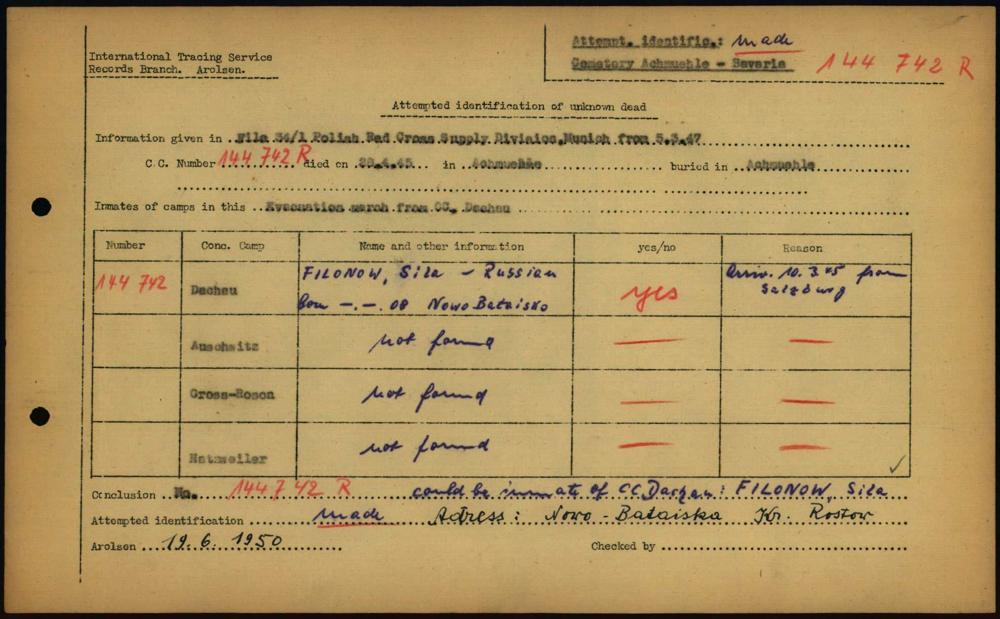 Attempt. identific.: made
International Tracing Service
Records Branch. Arolsen.
Cemetery Achmuehle - Bavaria 144 742 R
Attempted identification of unknown dead
Information given in ..File 34/1 Polish Red Cross Supply Division, Munich from 5.3.47
C.C. Number 144 742 R died on 28.4.45... in ..Achmuehle........ buried in ..Achmuehle
Inmates of camps in this ..Evacuation march from CC. Dachau
Number Conc. Camp Name and other information yes/no Reason
144 742 Dachau FILONOW, Sila - Russian yes Arriv. 10.3.45 from
born -.-.08 Nowo Bataisko Salzburg
Auschwitz not found — —
Gross-Rosen not found — —
Natzweiler not found — — ✓
Conclusion ..No. 144 742 R could be inmate of CC Dachau: FILONOW, Sila
Attempted identification made Adress: Nowo-Bataiska Kr. Rostow
Arolsen ...19.6.1950........ Checked by ........